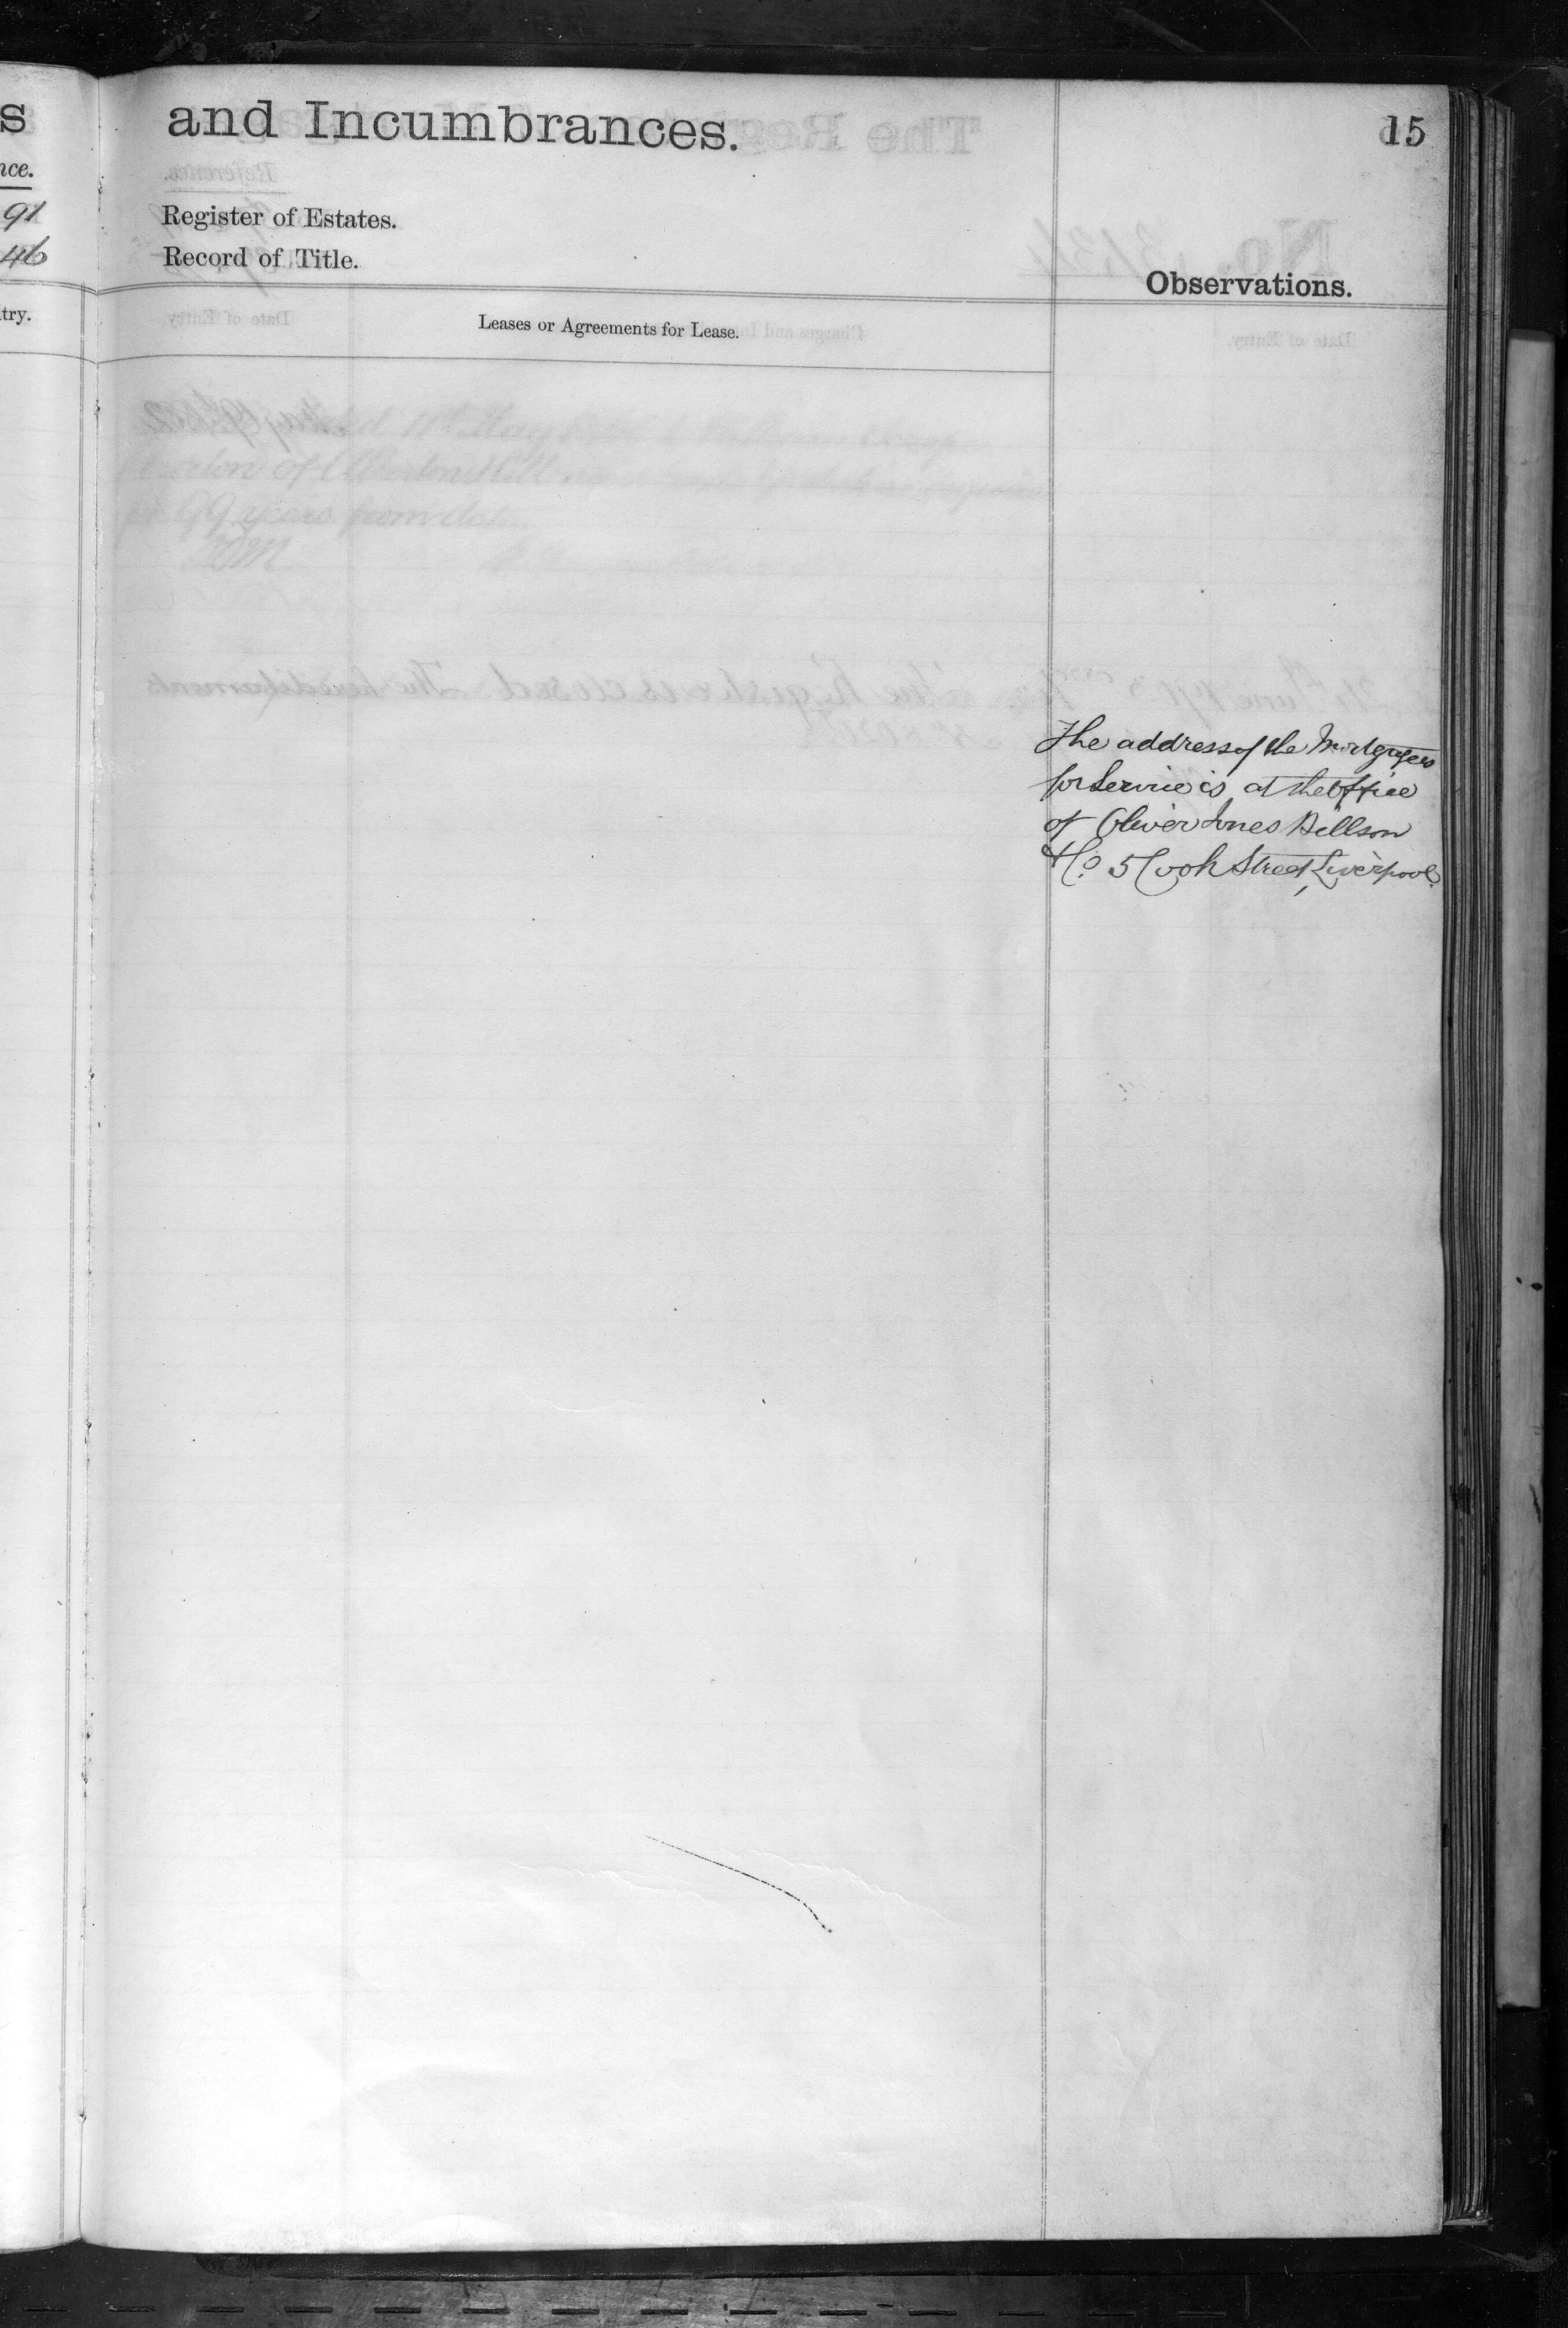 s
and Incumbrances.
15
nce.
91
Register of Estates.
46
Record of Title.
Observations.
try.
Leases or Agreements for Lease.
The address of the Mortgagees
for Service is at the Office
of Oliver Jones Billson
& Co. 5 Cook Street, Liverpool.